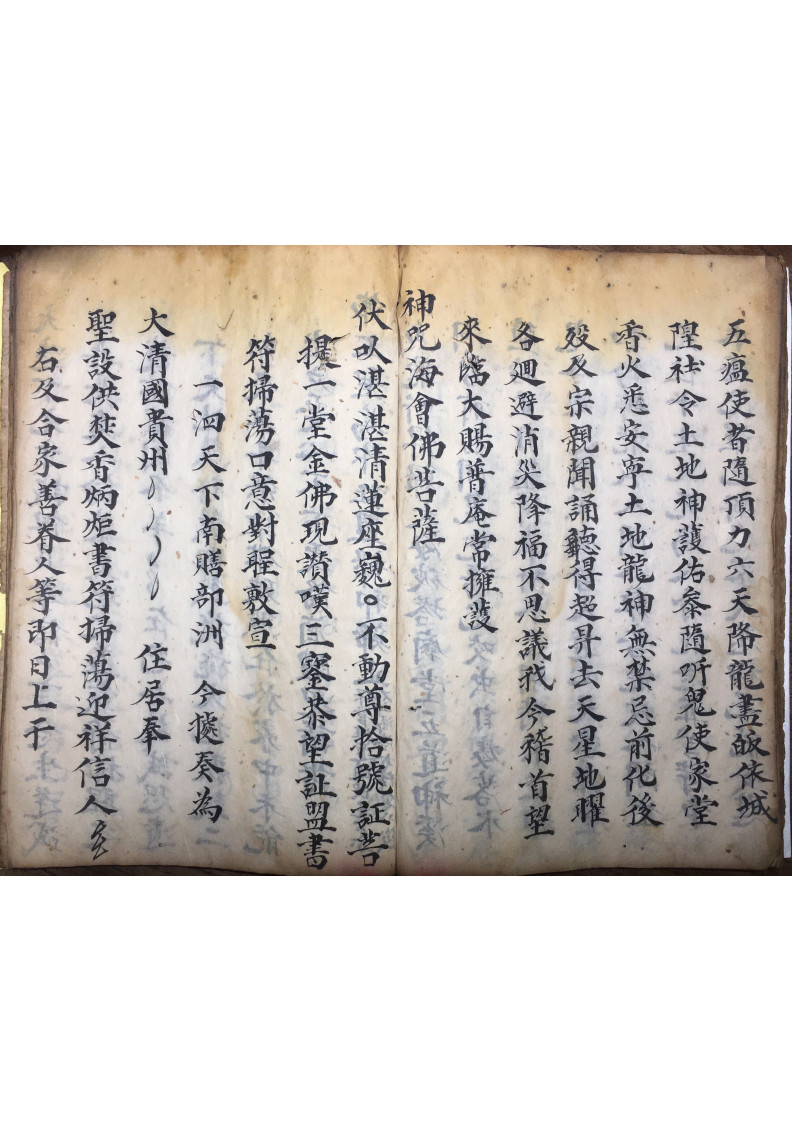 五瘟使者隨頂力六天降龍盡皈依城
隍社令土地神護佑叅隨听鬼使家堂
香火悉安寧土地龍神無禁忌前化後
殁及宗親聞誦聽得超昇去天星地曜
各廻避消災降福不思議我今稽首望
來臨大賜普庵常擁護
神咒海會佛菩薩
伏以湛湛清蓮座巍。不動尊拾號証菩
提一堂金佛現讃嘆三寳恭望証盟書
符掃蕩口意對聖敷宣
一泗天下南贍部洲 今據奏為
大清國貴州 住居奉
聖設供焚香炳炬書符掃蕩迎祥信人
右及合家善眷人等即日上干